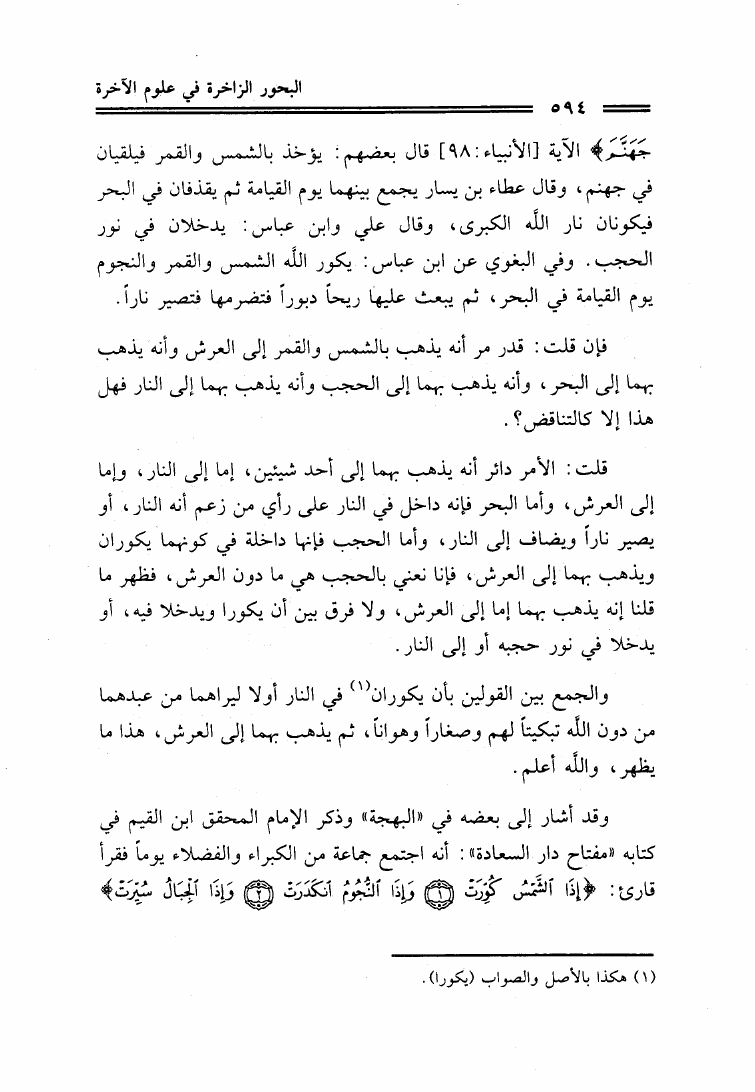 البحور الزاخرة في علوم الآخرة
٥٩٤
جَهَنَّمَ﴾ الآية [الأنبياء: ٩٨] قال بعضهم: يؤخذ بالشمس والقمر فيلقيان
في جهنم، وقال عطاء بن يسار يجمع بينهما يوم القيامة ثم يقذفان في البحر
فيكونان نار اللَّه الكبرى، وقال علي وابن عباس: يدخلان في نور
الحجب. وفي البغوي عن ابن عباس: يكور اللَّه الشمس والقمر والنجوم
يوم القيامة في البحر، ثم يبعث عليها ريحاً دبوراً فتضرمها فتصير ناراً.
فإن قلت: قدر مر أنه يذهب بالشمس والقمر إلى العرش وأنه يذهب
بهما إلى البحر، وأنه يذهب بهما إلى الحجب وأنه يذهب بهما إلى النار فهل
هذا إلا كالتناقض؟.
قلت: الأمر دائر أنه يذهب بهما إلى أحد شيئين، إما إلى النار، وإما
إلى العرش، وأما البحر فإنه داخل في النار على رأي من زعم أنه النار، أو
يصير ناراً ويضاف إلى النار، وأما الحجب فإنها داخلة في كونهما يكوران
ويذهب بهما إلى العرش، فإنا نعني بالحجب هي ما دون العرش، فظهر ما
قلنا إنه يذهب بهما إما إلى العرش، ولا فرق بين أن يكورا ويدخلا فيه، أو
يدخلا في نور حجبه أو إلى النار.
والجمع بين القولين بأن يكوران(١) في النار أولا ليراهما من عبدهما
من دون اللَّه تبكيتاً لهم وصغاراً وهواناً، ثم يذهب بهما إلى العرش، هذا ما
يظهر، واللَّه أعلم.
وقد أشار إلى بعضه في «البهجة» وذكر الإمام المحقق ابن القيم في
كتابه «مفتاح دار السعادة»: أنه اجتمع جماعة من الكبراء والفضلاء يوماً فقرأ
قارئ: ﴿إِذَا ٱلشَّمْسُ كُوِّرَتْ ١ وَإِذَا ٱلنُّجُومُ ٱنكَدَرَتْ ٢ وَإِذَا ٱلْجِبَالُ سُيِّرَتْ﴾
(١) هكذا بالأصل والصواب (يكورا).